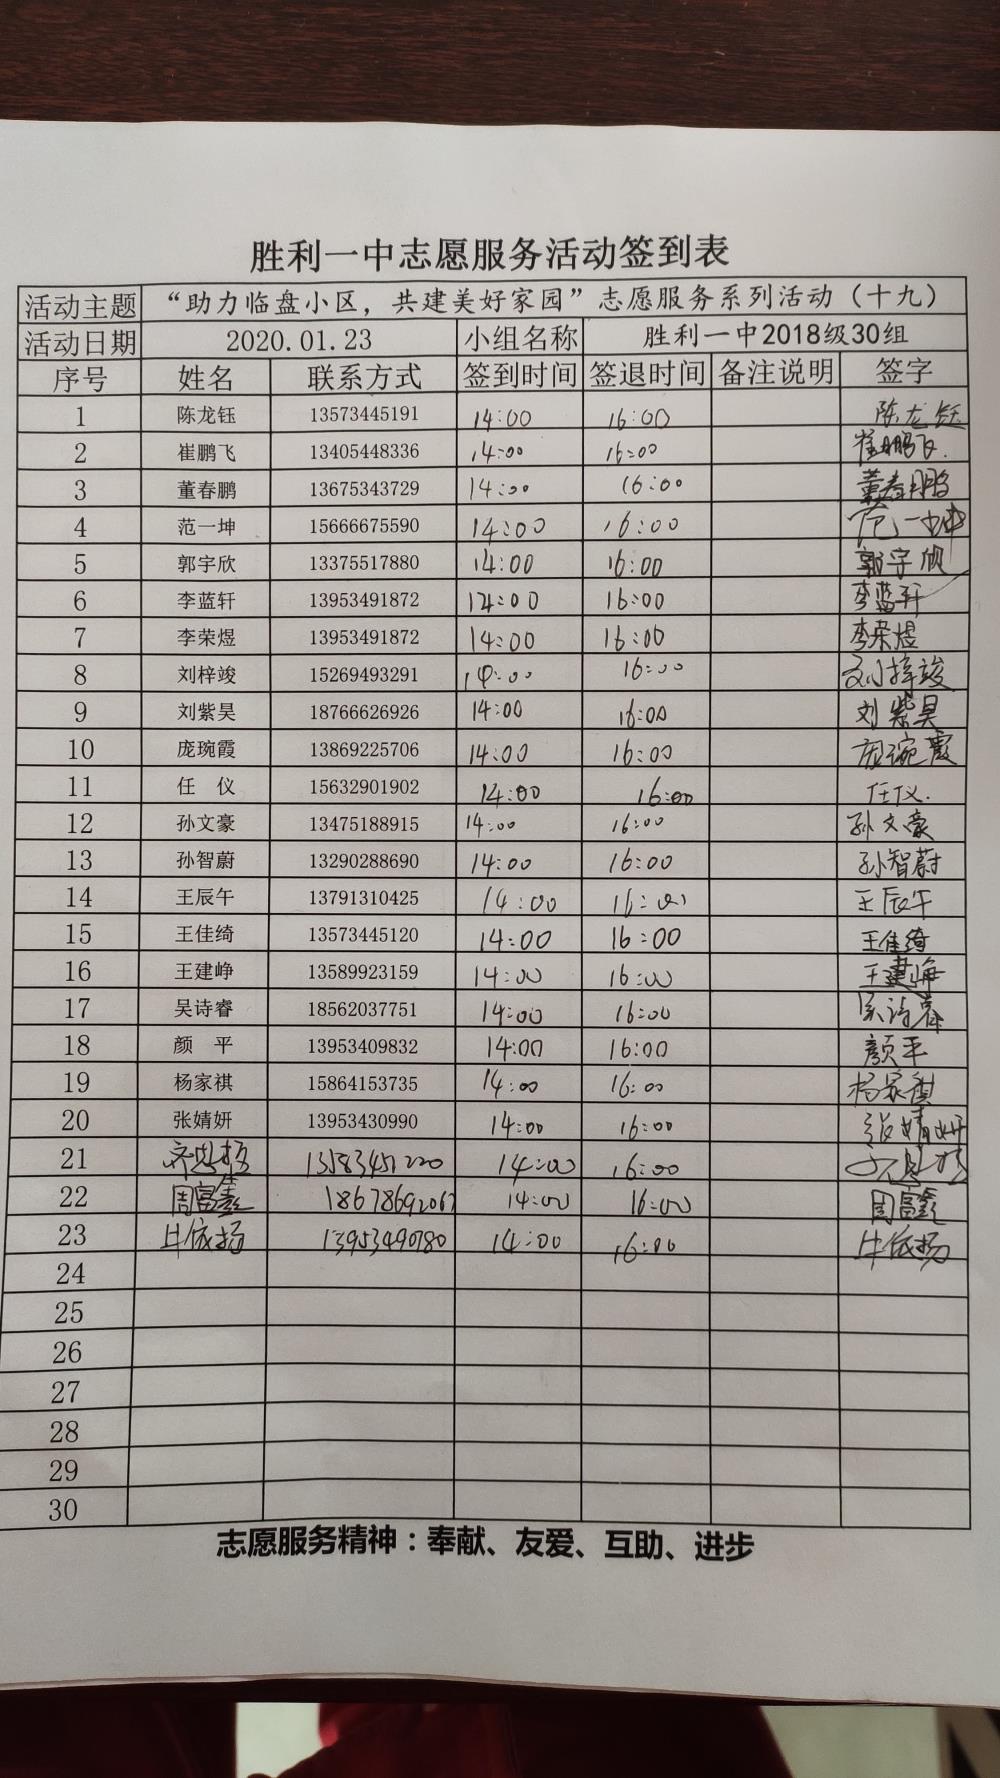 胜利一中志愿服务活动签到表
活动主题 “助力临盘小区，共建美好家园”志愿服务系列活动（十九）
活动日期 2020.01.23 小组名称 胜利一中2018级30组
序号 姓名 联系方式 签到时间 签退时间 备注说明 签字
1 陈龙钰 13573445191 14:00 16:00 陈龙钰
2 崔鹏飞 13405448336 14:00 16:00 崔鹏飞.
3 董春鹏 13675343729 14:00 16:00 董春鹏
4 范一坤 15666675590 14:00 16:00 范一坤
5 郭宇欣 13375517880 14:00 16:00 郭宇欣
6 李蓝轩 13953491872 14:00 16:00 李蓝轩
7 李荣煜 13953491872 14:00 16:00 李荣煜
8 刘梓竣 15269493291 14:00 16:00 刘梓竣
9 刘紫昊 18766626926 14:00 16:00 刘紫昊
10 庞琬霞 13869225706 14:00 16:00 庞琬霞
11 任 仪 15632901902 14:00 16:00 任仪.
12 孙文豪 13475188915 14:00 16:00 孙文豪
13 孙智蔚 13290288690 14:00 16:00 孙智蔚
14 王辰午 13791310425 14:00 16:00 王辰午
15 王佳绮 13573445120 14:00 16:00 王佳绮
16 王建峥 13589923159 14:00 16:00 王建峥
17 吴诗睿 18562037751 14:00 16:00 吴诗睿
18 颜 平 13953409832 14:00 16:00 颜平
19 杨家祺 15864153735 14:00 16:00 杨家祺
20 张婧妍 13953430990 14:00 16:00 张婧妍
21 13583451220 14:00 16:00
22 周富鑫 18678692067 14:00 16:00 周富鑫
23 牛依扬 13953490780 14:00 16:00 牛依扬
24
25
26
27
28
29
30
志愿服务精神：奉献、友爱、互助、进步